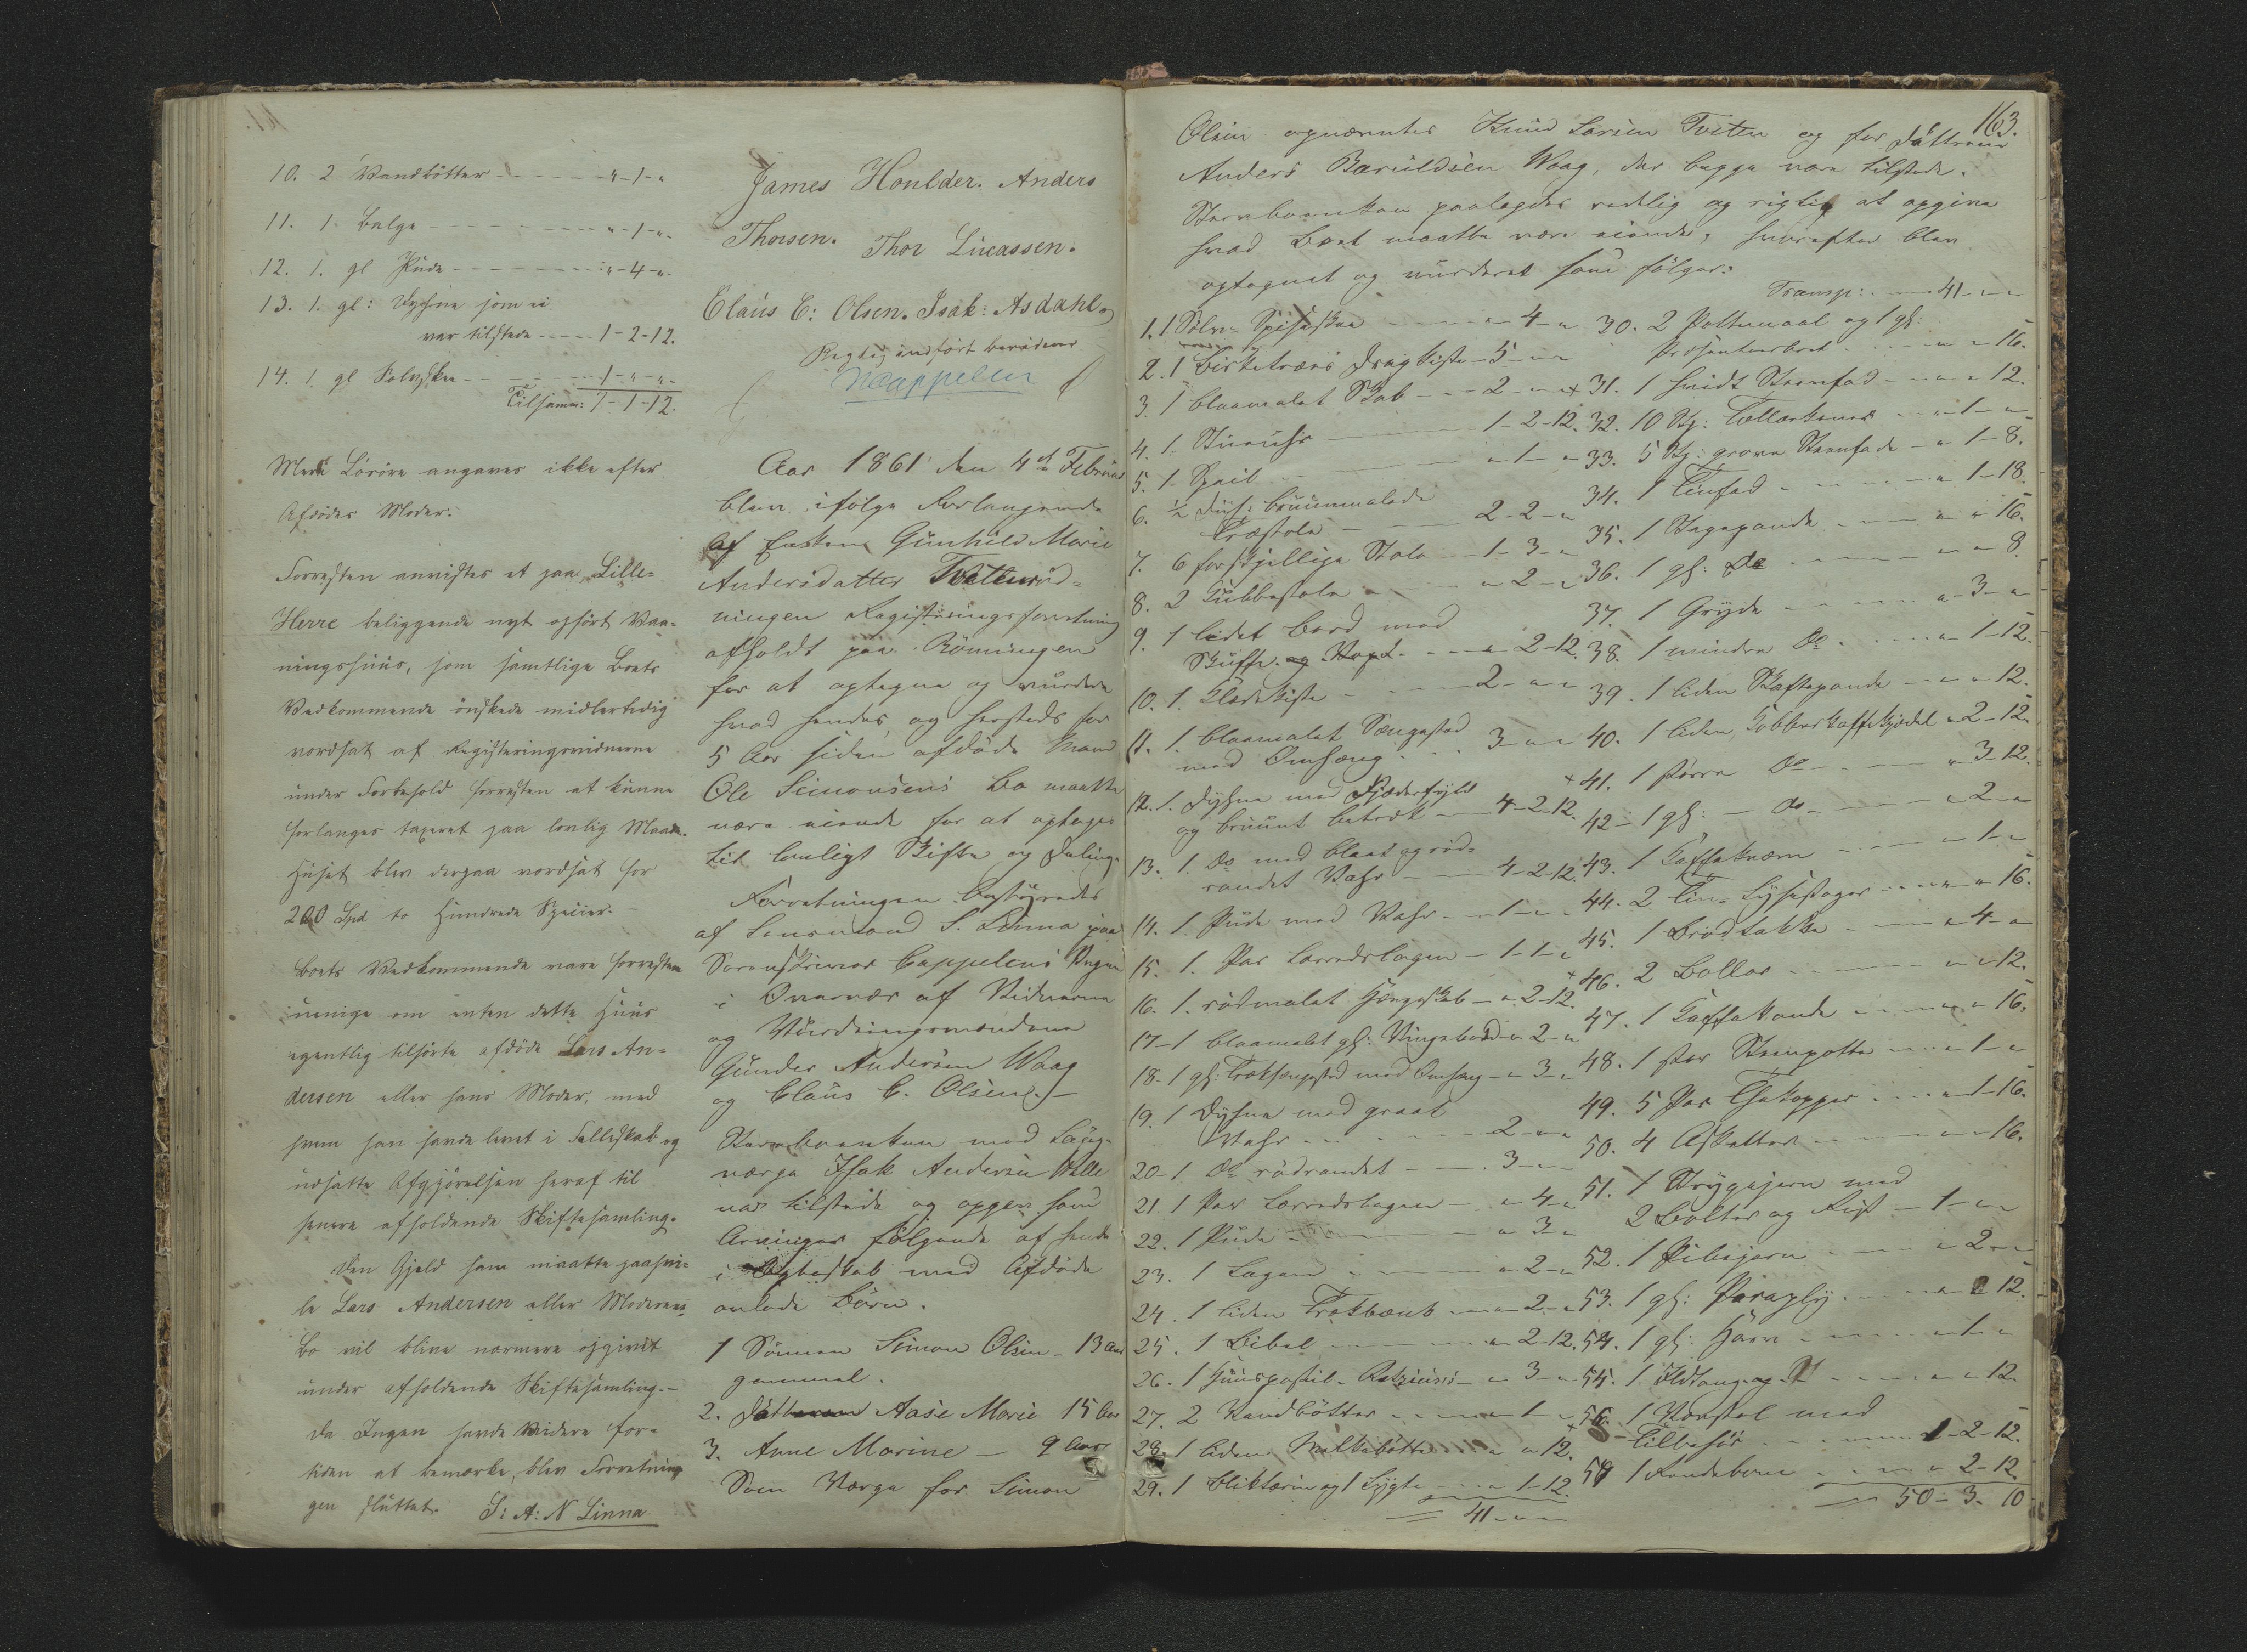 10. 2 Vandbøtter - - - - - - „-1-„
11. 1. Balge - - - - - - - - - „-1-„.
12. 1. gl Pude - - - - - - - - „-4-„.
13. 1. gl: Dyhne som ei
var tilstede - - - - - 1-2-12.
14. 1. gl Sølvskee - - - - - - 1-„-„-
Tilsamm: 7-1-12.
Mere Løsøre angaves ikke efter
Afdødes Moder.
Forresten anvistes et paa Lille-
Herre beliggende nyt opført Vaa-
ningshuus, som samtlige Boets
Vedkommende ønskede midlertidig
værdsat af Registeringsvidnerne
under Forbehold forresten at kunne
forlanges taxeret paa lovlig Maade.
Huset blev derpaa værdsat for
200 Spd to Hundrede Specier. -
Boets Vedkommende vare forresten
uenige om enten dette Huus
egentlig tilhørte afdøde Lars An-
dersen eller hans Moder, med
hvem han havde levet i Fælleskab og
udsatte Afgjørelsen heraf til
senere afholdende Skiftesamling.
Den Gjeld som maatte paahvi-
le Lars Andersen eller Moderens
Bo vil blive nærmere opgivet
under afholdende Skiftesamling. -
Da Ingen havde videre for-
tiden at bemærke, blev Forretnin-
gen sluttet. S: A: N Linna
James Houlder. Anders
Thorsen. Thor Lucassen.
Claus C: Olsen. Isak: Asdahl.
Rigtig indført bevidner
NCappelen
Aar 1861 den 4de Februar
blev ifølge Forlangende
af Enken Gunhild Marie
Andersdatter Tvetenrød-
ningen Registeringsforretning
afholdt paa Rømningen
for at optegne og vurdere
hvad hendes og hersteds for
5 Aar siden afdøde Mand
Ole Simonsens Bo maatte
være eiende for at optages
til lovligt Skifte og Deling.
Forretningen bestyredes
af Lensmand S. Linna paa
Sorenskriver Cappelens Vegne
i Overvær af Vidnerne
og Vurderingsmændene
Gunder Andersen Waag
og Claus C. Olsen. -
Stervboenken med Laug-
værge Isak Andersen Valle
var tilstede og opgav som
Arvinger følgende af hende
i Ægteskab med Afdøde
avlede Børn.
1 Sønnen Simon Olsen - 13 Aar
gammel.
2. Datteren Aase Marie 15 Aar
3. Anne Marine - 9 Aar
Som Værge for Simon
163.
Olsen opnævntes Knud Larsen Tveten og for Døttrene
Anders Baruldsen Waag, der begge vare tilstede.
Stervboenken paalagdes redelig og rigtig at opgive
hvad Boet maatte være eiende, hvorefter blev
optegnet og vurderet som følger:
1. 1 Sølv-Spiseskee - - - „-4-„
2. 1 Birketræes Dragkiste - 5-„-„
3. 1 blaamalet Skab - - 2-„-„
4. 1. Stueuhr - - - 1-2-12.
5. 1. Speil - - - „-1-„
6. ½ Dus: bruunmalede
Træstole - - - 2-2-„
7. 6 forskjellige Stole - 1-3-„
8. 2 Kubbestole - - - „-2-„
9. 1 lidet Bord med
Skuffe og Klap - - - „-2-12.
10. 1. Klædekiste - - - 2-„-„
11. 1. blaamalet Sængested
med Omhæng - - - 3-„-„
12. 1. Dyhne med Fjæderfyld
og bruunt Betræk - 4-2-12.
13. 1. do med blaat og rød-
randet Vahr - - 4-2-12.
14. 1. Pude med Vahr - - 1-„-„
15. 1. Par Lærredslagen - 1-1-„
16. 1. rødmalet Hængeskab - „-2-12.
17 - 1 blaamalet gl: Vingebord - „-2-„
18 - 1 gl: Træksængested med Omhæng - „-3-„
19. 1 Dyhne med graat
Vahr - - - 2-„-„
20 - 1 do rødrandet - - 3-„-„
21. 1 Par Lærredslagen - „-4-„
22. 1 Pude - - - „-3-„
23. 1 Lagen - - - „-2-„
24. 1 liden Trækbænk - „-2-„
25. 1 Bibel - - - „-2-12.
26. 1 Huuspostil - - „-3-„
27. 2 Vandbøtter - - - „-1-„
28. 1 liden Melkebøtte - - „-„-12.
29. 1 Bliktærin og 1 Lygte - - „-1-12.
41-„-„
Transp: - - 41-„-„
30. 2 Pottemaal og 1 gl:
Præsenteerbret - - - „-„-16.
31. 1 hvidt Steenfad - - „-„-12.
32. 10 Stk: Tællærkener - - „-1-„
33. 5 Stk: grove Steenfade - „-1-8.
34. 1 Tinfad - - - „-1-18.
35. 1 Stegepande - - - „-„-16.
36. 1 gl: do - - - „-„-8.
37. 1 Gryde - - - „-3-„
38. 1 mindre do - - - „-1-12.
39. 1 liden Skaftepande - - „-„-12.
40. 1 liden Kobberkaffekjedel „-2-12.
41. 1 større do - - - „-3-12.
42 - 1 gl: - do - - - „-2-„
43. 1 Kaffekværn - - - „-1-„
44. 2 Tin-Lysestager - - „-„-16.
45. 1 Brødtakke - - - „-4-„
46. 2 Boller - - - „-„-12.
47. 1 Kaffekande - - - „-„-16.
48. 1 stor Steenpotte - - „-1-„
49. 5 Par Thekopper - - - „-1-16.
50. 4 Asketter - - - „-„-16.
51. 1 Strygejern med
2 Bolter og Rist - 1-„-„
52. 1 Pibejern - - - „-2-„
53. 1 gl: Paraply - - - „-„-12.
54. 1 gl: Harv - - - „-1-„
55. 1 Ildtang - - - „-„-12.
56. 1 Vævstol med
Tilbehør - - - 1-2-12.
57 1 - - - „-2-12.
50-3-10